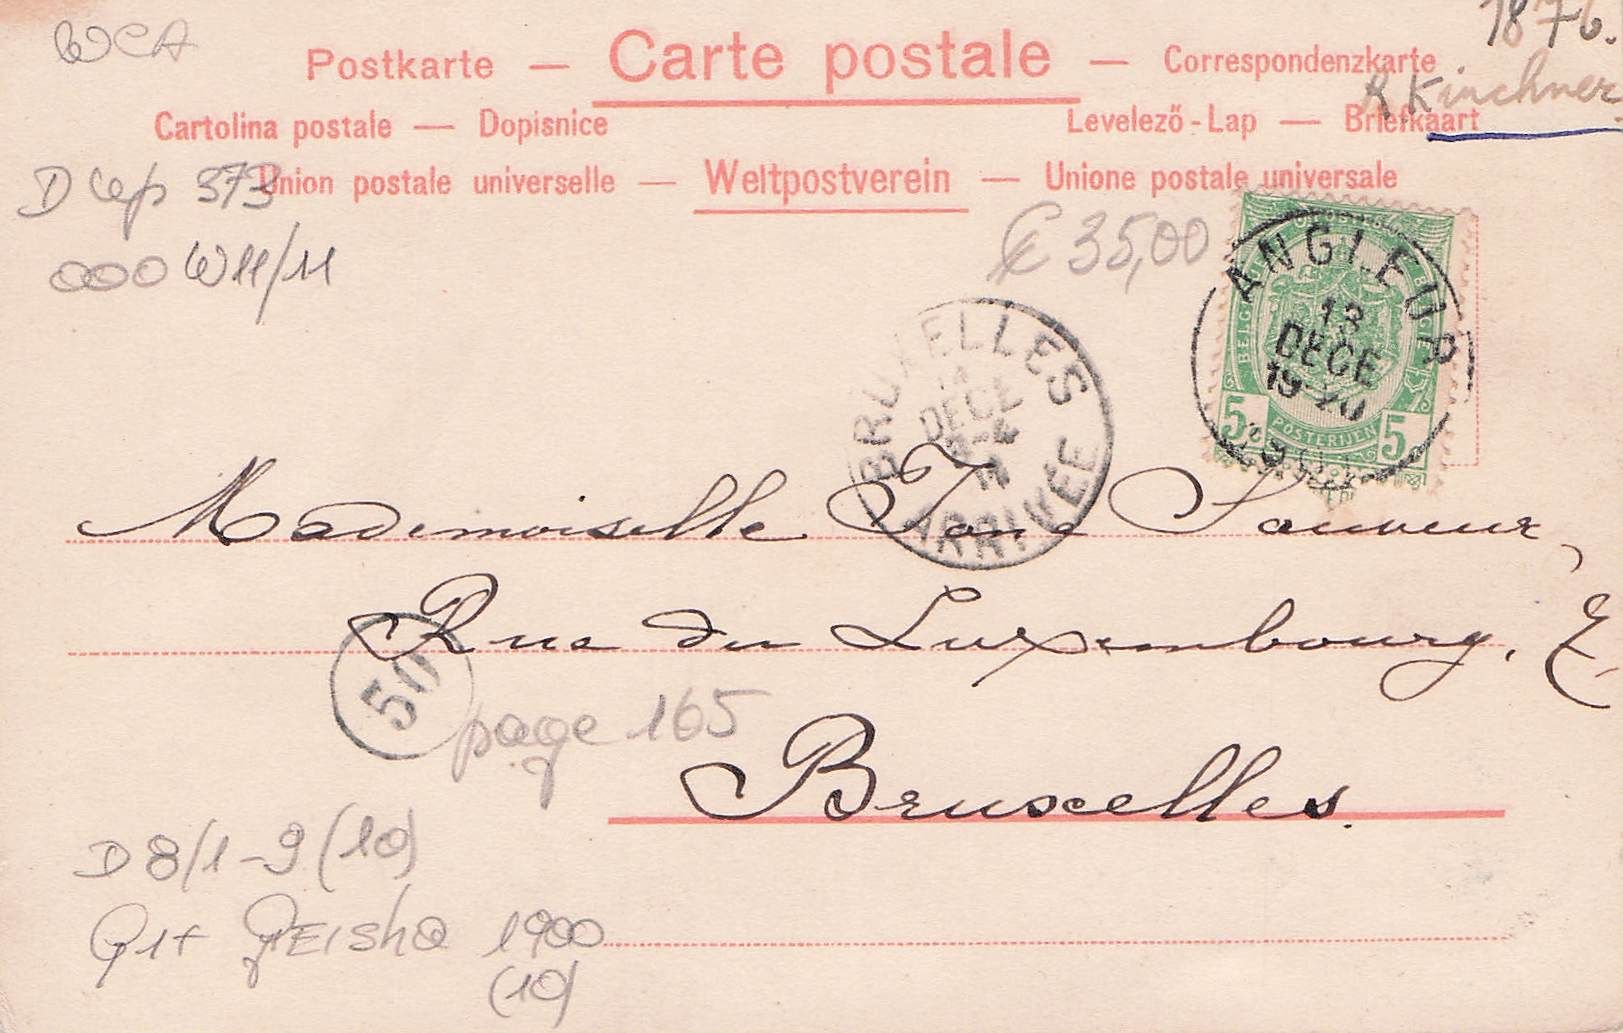 WCA
1876.
Postkarte — Carte postale — Correspondenzkarte
R Kirchner
Cartolina postale — Dopisnice
Levelező-Lap — Briefkaart
D Cep 373
Union postale universelle — Weltpostverein — Unione postale universale
€ 35,00
000 W11/11
ANGLEUR
13
DECE
19-20
BELGIQUE
5 POSTERIJEN 5
BRUXELLES
14
DECE
ARRIVÉE
Mademoiselle Jane Sauveur,
Rue du Luxembourg,
50
page 165
Bruxelles.
D 8/1-9 (10)
Geisha 1900
(10)